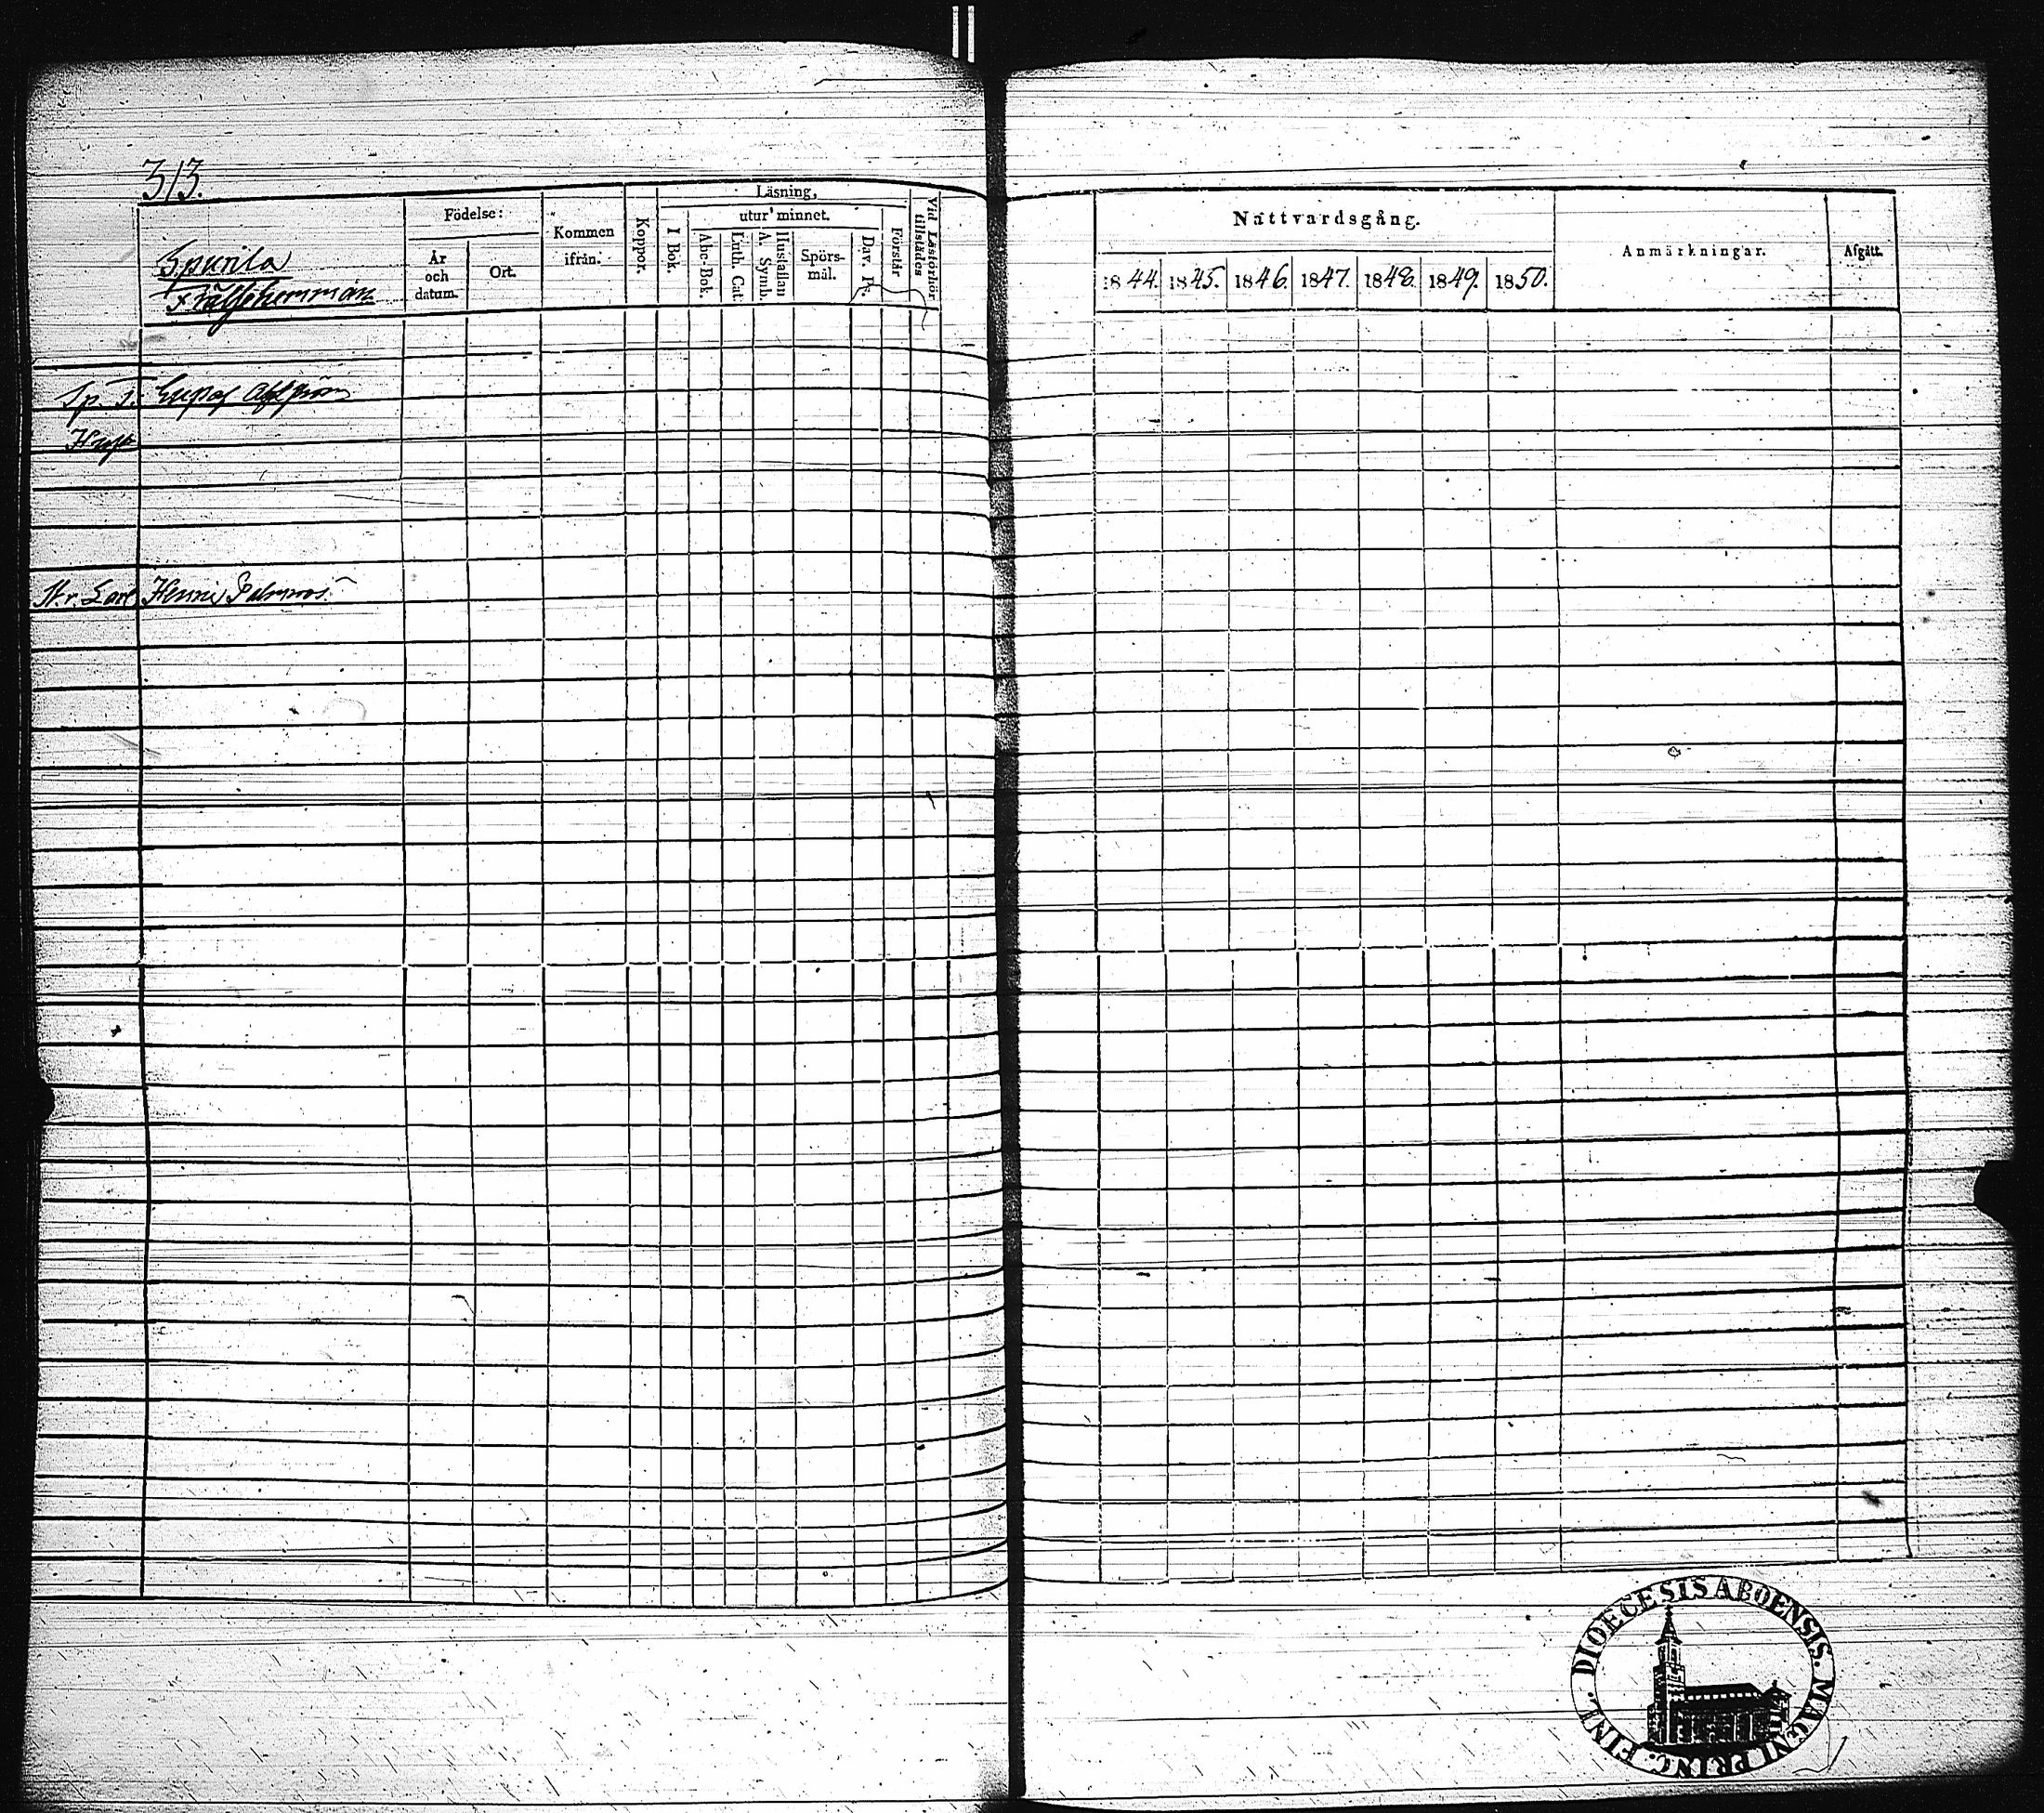 313.
Spurila
Frälsehemman
Födelse:
År
och
datum.
Ort.
Kommen
ifrån.
Koppor.
Läsning,
I Bok.
utur minnet.
Abc-Bok.
Luth. Cat.
A. Symb.
Hustaflan
Spörs-
mål.
Dav. Ps.
Förstår.
Vid Läsförhör
tillstädes
Nattvardsgång.
1844. 1845. 1846. 1847. 1848. 1849. 1850.
Anmärkningar.
Afgått.
Henric
DIOECESIS ABOENSIS. MAGNI PRINC. FINL.